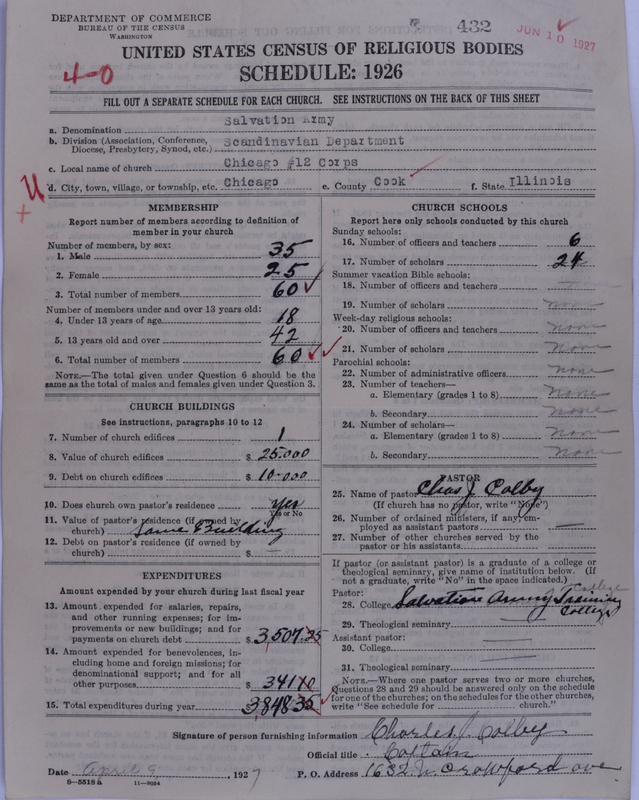 DEPARTMENT OF COMMERCE
BUREAU OF THE CENSUS
WASHINGTON
432
JUN 10 1927
UNITED STATES CENSUS OF RELIGIOUS BODIES
4-0
SCHEDULE: 1926
FILL OUT A SEPARATE SCHEDULE FOR EACH CHURCH. SEE INSTRUCTIONS ON THE BACK OF THIS SHEET
a. Denomination Salvation Army
b. Division (Association, Conference, Diocese, Presbytery, Synod, etc.) Scandinavian Department
c. Local name of church Chicago #12 Corps
d. City, town, village, or township, etc. Chicago e. County Cook f. State Illinois
U
+
MEMBERSHIP
Report number of members according to definition of
member in your church
Number of members, by sex:
1. Male 35
2. Female 25
3. Total number of members 60
Number of members under and over 13 years old:
4. Under 13 years of age 18
5. 13 years old and over 42
6. Total number of members 60
NOTE.—The total given under Question 6 should be
same as the total of males and females given under Question 3.
CHURCH BUILDINGS
See instructions, paragraphs 10 to 12
7. Number of church edifices 1
8. Value of church edifices $ 25.000
9. Debt on church edifices $ 10-000
10. Does church own pastor's residence yes
Yes or No
11. Value of pastor's residence (if owned by
church) Same Building
12. Debt on pastor's residence (if owned by
church) $ —
EXPENDITURES
Amount expended by your church during last fiscal year
13. Amount expended for salaries, repairs,
and other running expenses; for im-
provements or new buildings; and for
payments on church debt $ 3,507.25
14. Amount expended for benevolences, in-
cluding home and foreign missions; for
denominational support; and for all
other purposes $ 341 10
15. Total expenditures during year 3848.35
CHURCH SCHOOLS
Report here only schools conducted by this church
Sunday schools:
16. Number of officers and teachers 6
17. Number of scholars 24
Summer vacation Bible schools:
18. Number of officers and teachers
19. Number of scholars none
Week-day religious schools:
20. Number of officers and teachers none
21. Number of scholars none
Parochial schools:
22. Number of administrative officers none
23. Number of teachers—
a. Elementary (grades 1 to 8) none
b. Secondary none
24. Number of scholars—
a. Elementary (grades 1 to 8) none
b. Secondary none
PASTOR
25. Name of pastor Chas J. Colby
(If church has no pastor, write "None")
26. Number of ordained ministers, if any, em-
ployed as assistant pastors —
27. Number of other churches served by the
pastor or his assistants
If pastor (or assistant pastor) is a graduate of a college or
theological seminary, give name of institution below. (If
not a graduate, write "No" in the space indicated.)
Pastor: College
28. College Salvation Army Training
College
29. Theological seminary —
Assistant pastor:
30. College —
31. Theological seminary —
NOTE.—Where one pastor serves two or more churches,
Questions 28 and 29 should be answered only on the schedule
for one of the churches; on the schedules for the other churches,
write "See schedule for church."
Signature of person furnishing information Charles J. Colby
Official title Captain
Date April 9, 1927 P. O. Address 1632 N. Crawford ave
8-5518a 11-9024